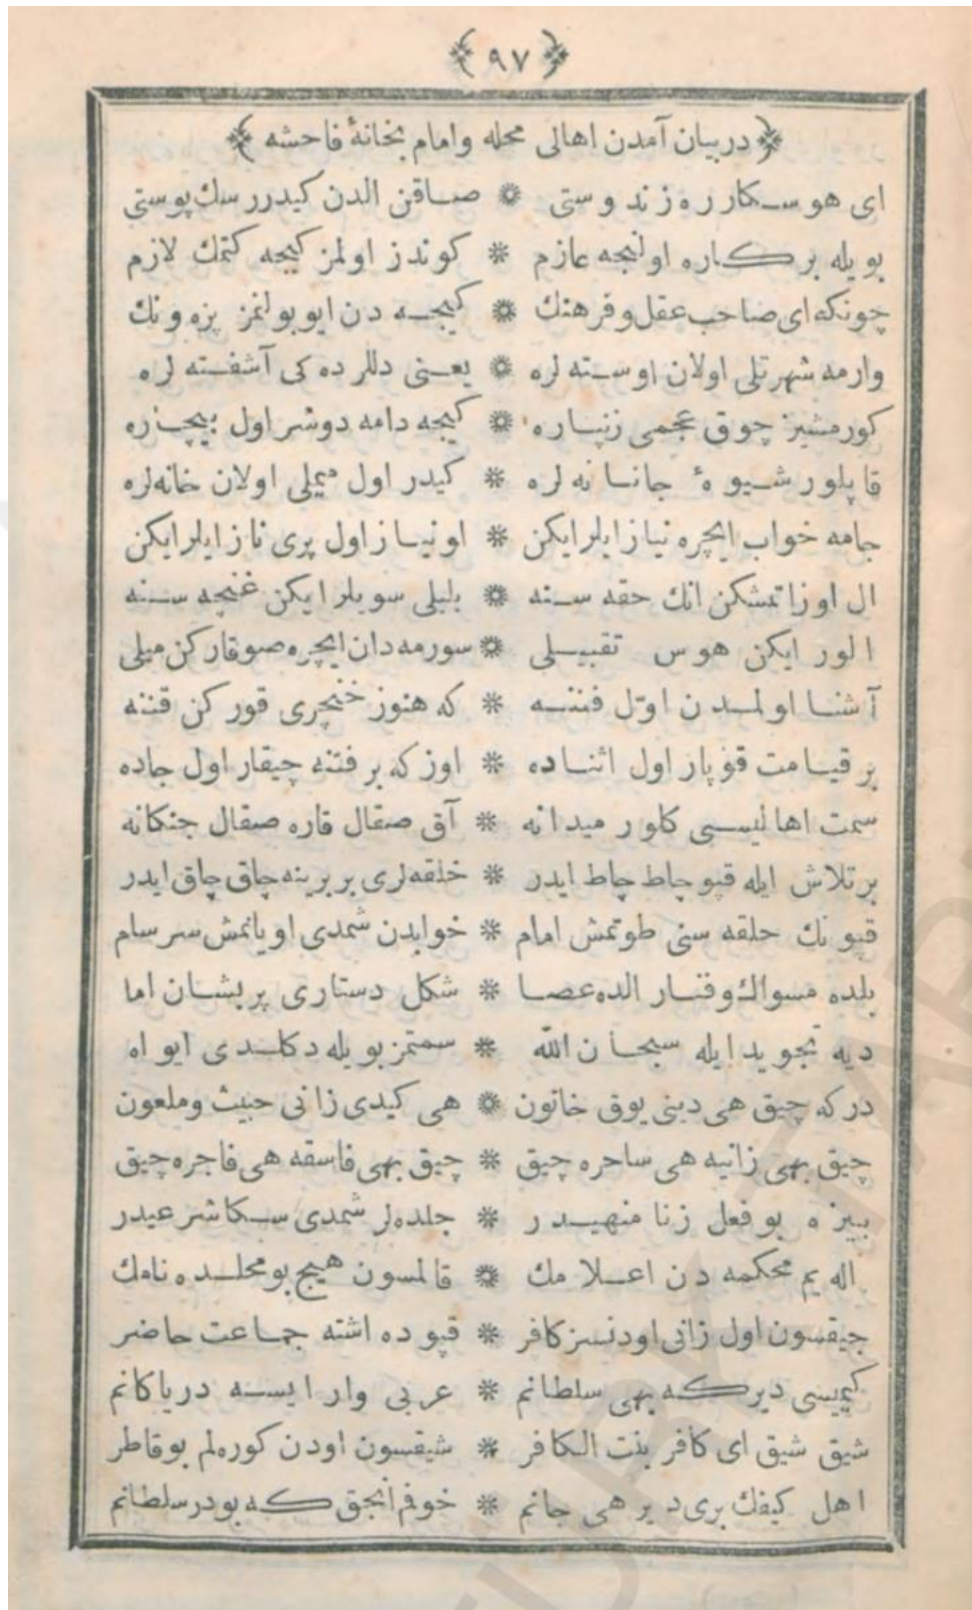 ﴿ ٩٧ ﴾
﴿ در بیان آمدن اهالی محله وامام بخانهٔ فاحشه ﴾
ای هوسکار ره زند وستی ❊ صاقن الدن کیدرر سك پوستی
بویله بر کاره اولنجه عازم ❊ کوندز اولمز کیجه کتمك لازم
چونکه ای صاحب عقل وفرهنك ❊ کیجه دن ایو بولنمز پزه ونك
وارمه شهرتلی اولان اوسته لره ❊ یعنی دللر ده کی آشفته لره
کورمشیز چوق عجمی زنپاره ❊ کیجه دامه دوشر اول بیچاره
قاپلور شیوهٔ جانانه لره ❊ کیدر اول میملی اولان خانه لره
جامه خواب ایچره نیاز ایلر ایکن ❊ او نیاز اول پری ناز ایلر ایکن
ال اوزاتمشکن انك حقه سنه ❊ بلبلی سویلر ایکن غنچه سنه
الور ایکن هوس تقبیلی ❊ سورمه دان ایچره صوقارکن میلی
آشنا اولمدن اوّل فتنه ❊ که هنوز خنجری قورکن قننه
بر قیامت قوپار اول اثناده ❊ اوزکه بر فتنه چیقار اول جاده
سمت اهالیسی کلور میدانه ❊ آق صقال قاره صقال جنکانه
بر تلاش ایله قپو چاط چاط ایدر ❊ خلقه لری بر برینه چاق چاق ایدر
قپونك حلقه سنی طوتمش امام ❊ خوابدن شمدی اویانمش سرسام
بلده مسواك وفنار الده عصا ❊ شکل دستاری پریشان اما
دیه تجوید ایله سبحان الله ❊ سمتمز بویله دکلدی ایواه
در که چیق هی دینی یوق خاتون ❊ هی کیدی زانی خبیث وملعون
چیق بهی زانیه هی ساحره چیق ❊ چیق بهی فاسقه هی فاجره چیق
بیزه بو فعل زنا منهیدر ❊ جلده لر شمدی سکا شرعیدر
اله یم محکمه دن اعلامك ❊ قالمسون هیچ بو محلده نامك
جیقسون اول زانی اودنسز کافر ❊ قپوده اشته جماعت حاضر
کیمیسی دیر که بهی سلطانم ❊ عربی وار ایسه دریا کانم
شیق شیق ای کافر بنت الکافر ❊ شیقسون اودن کوره لم بو قاطر
اهل کیفك بری دیر هی جانم ❊ خوفم انجق که بودر سلطانم